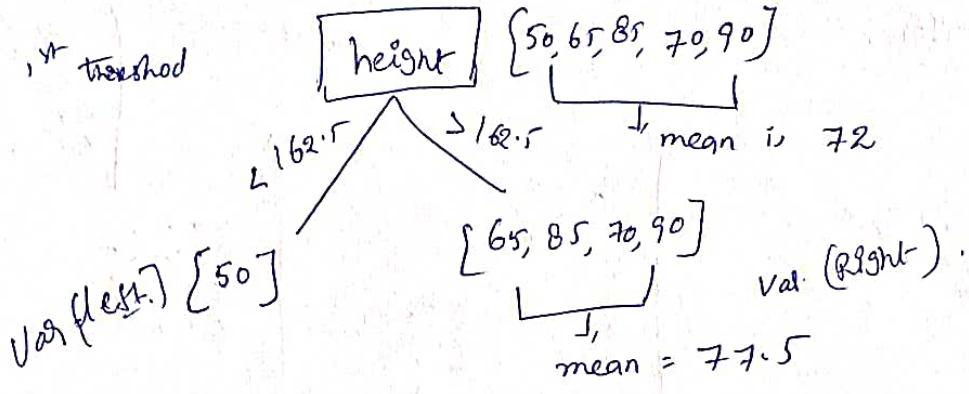 1st threshod
height [50, 65, 85, 70, 90]
mean is 72
< 162.5 > 162.5
Var (left.) [50]
[65, 85, 70, 90]
Var. (Right).
mean = 77.5